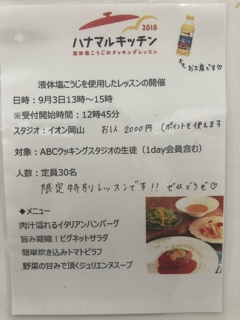 2018
ハナマルキッチン
液体塩こうじのクッキングレッスン
お土産です♡
液体塩こうじを使用したレッスンの開催
日時：9月3日13時～15時
※受付開始時間：12時45分
スタジオ：イオン岡山 お1人 2000円（ポイントも使えます
対象：ABCクッキングスタジオの生徒（1day会員含む）
人数：定員30名
限定特別レッスンです!! ぜひどうぞ♡
◆メニュー
肉汁溢れるイタリアンハンバーグ
旨み凝縮！ビグネットサラダ
簡単炊き込みトマトピラフ
野菜の甘みで頂くジュリエンヌスープ